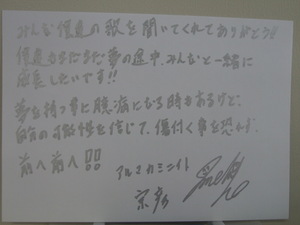 みんな僕達の歌を聞いてくれてありがとう!!
僕達もまだまだ夢の途中、みんなと一緒に
成長したいです!!
夢を持つ事に臆病になる時もあるけど、
自分の可能性を信じて、傷付く事を恐れず、
前へ前へ!!
アルマカミニイト